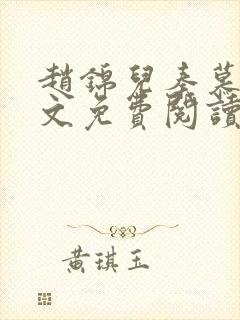 趙錦兒秦慕
文免費閱讀
黃琪玉